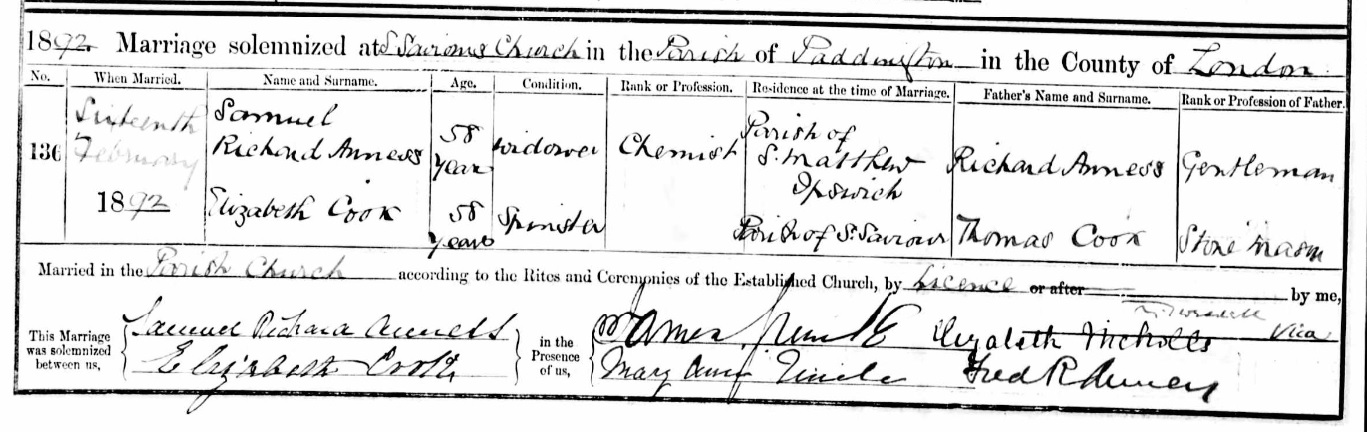 1892 Marriage solemnized at S Saviours Church in the Parish of Paddington in the County of London
No. When Married. Name and Surname. Age. Condition. Rank or Profession. Residence at the time of Marriage. Father's Name and Surname. Rank or Profession of Father.
136 Sixteenth February 1892
Samuel
Richard Anness
58
Years
Widower
Chemist
Parish of
S. Matthew
Ipswich
Richard Anness
Gentleman
Elizabeth Cook
58
Years
Spinster
Parish of S. Saviour
Thomas Cook
Stone Mason
Married in the Parish Church according to the Rites and Ceremonies of the Established Church, by Licence or after by me,
Vicar
This Marriage
was solemnized
between us,
Samuel Richard Anness
Elizabeth Cook
in the
Presence
of us,
James Elizabeth Nicholls
Mary Ann Fred R